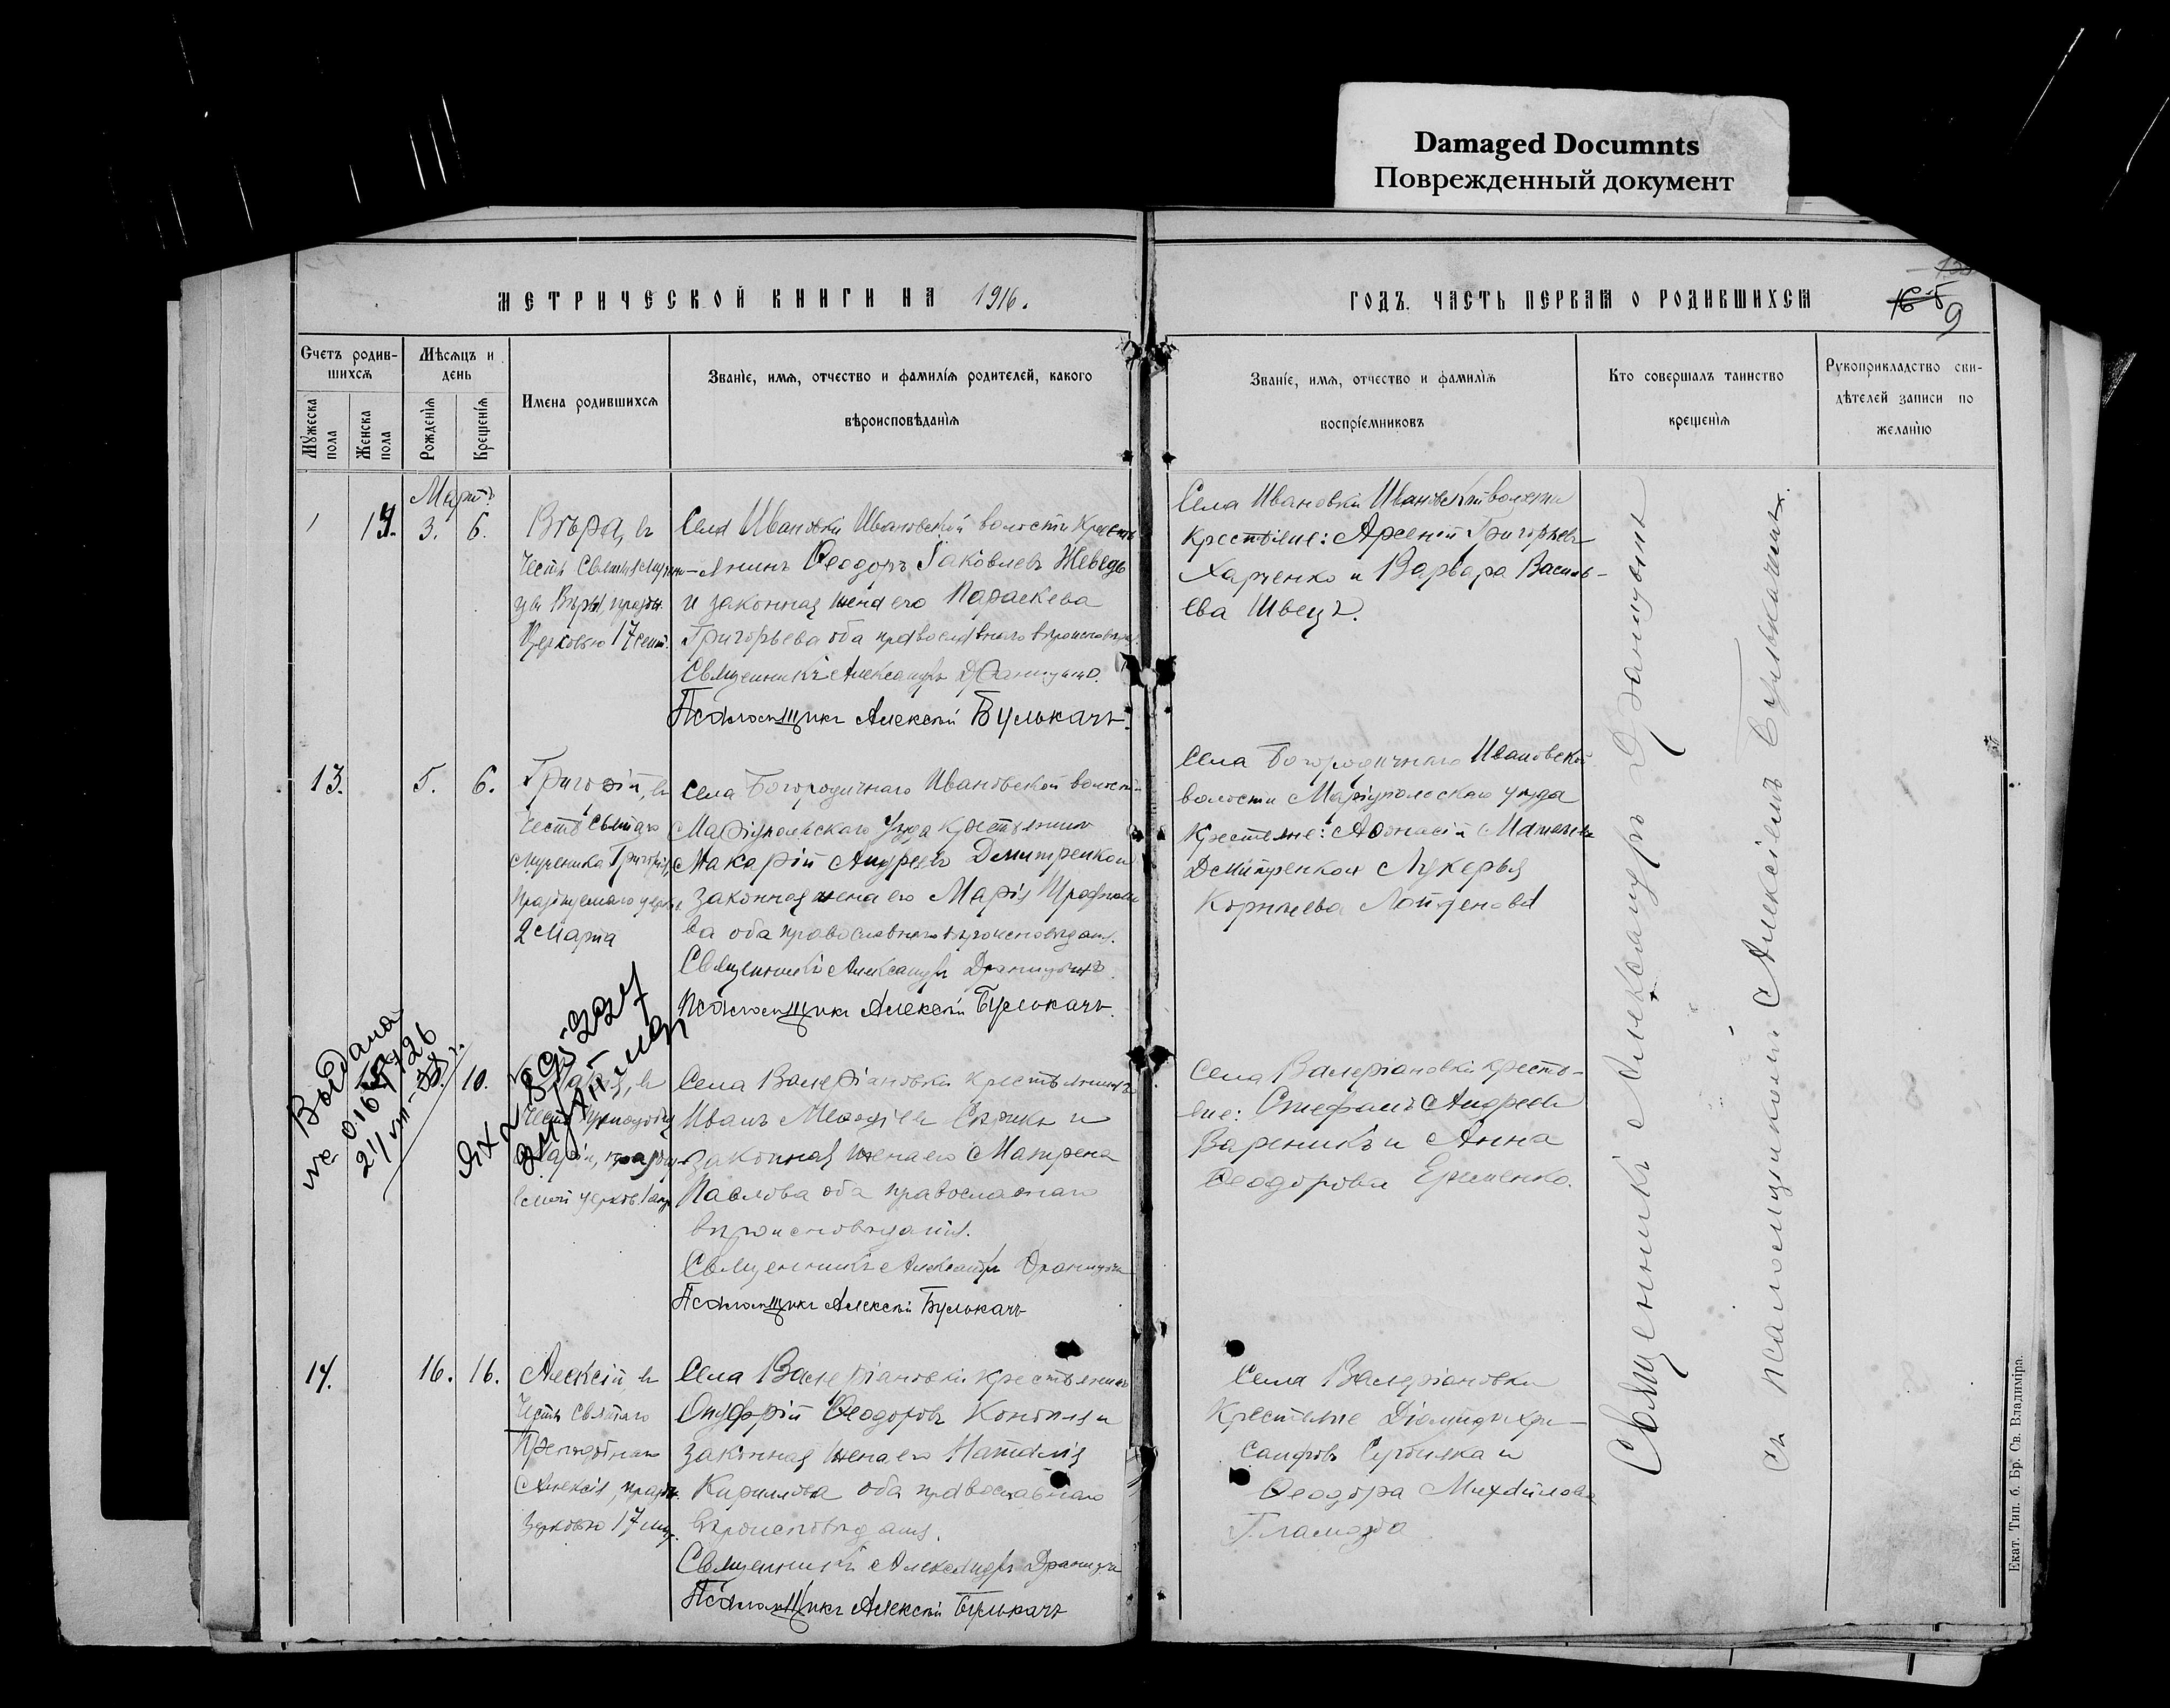 Damaged Documnts
Поврежденный документ
МЕТРИЧЕСКОЙ КНИГИ НА 1916.
ГОДЪ. ЧАСТЬ ПЕРВАЯ О РОДИВШИХСЯ
9
Счетъ родив-
шихся
Мужеска пола
Женска пола
Мѣсяцъ и
день
Рожденія
Крещенія
Имена родившихся
Званіе, имя, отчество и фамилія родителей, какого
вѣроисповѣданія
Званіе, имя, отчество и фамилія
воспріемниковъ
Кто совершалъ таинство
крещенія
Рукоприкладство сви-
дѣтелей записи по
желанію
Мартъ
3. 6.
Вѣра, въ
честь Святыя Мучени-
цы Вѣры, праздн.
Церковью 17 сент.
Села Ивановки Ивановской волости Кресть-
янинъ Ѳеодоръ Іаковлевъ
и законная жена его Параскева
Григорьева оба православнаго вѣроисповѣд.
Священникъ Александръ
Псаломщикъ Алексѣй Булькачъ.
Села Ивановки Ивановской волости
Крестьяне: Арсеній Григорьевъ
Харченко и Варвара Василь-
ева Швецъ.
13. 5. 6.
Григорій, въ
честь Святаго
Мученика Григорія,
празднуемаго церк.
2 Марта
Села Богородичнаго Ивановской волости
Маріупольскаго уѣзда крестьянинъ
Макарій Андреевъ Дмитренко и
законная жена его Марія
ва оба православнаго вѣроисповѣданія.
Священникъ Александръ
Псаломщикъ Алексѣй Булькачъ.
Села Богородичнаго Ивановской
волости Маріупольскаго уѣзда
Крестьяне: Аѳанасій
Дмитренко и Лукерья
Корнѣева
Выдана
10.
Марія, въ
честь преподобн.
Маріи, праздну-
емой церков. 1 апр.
Села Валеріановки крестьянинъ
Иванъ и
законная жена его Матрена
Павлова оба православнаго
вѣроисповѣданія.
Священникъ Александръ
Псаломщикъ Алексѣй Булькачъ
Села Валеріановки кресть-
яне: Стефанъ Андреевъ
Вареникъ и Анна
Ѳеодорова Еременко.
14. 16. 16.
Алексій, въ
честь Святаго
Преподобнаго
Алексія, праздн.
Церковью 17 мар.
Села Валеріановки крестьянинъ
Онуфрій Ѳеодоровъ Конопля и
законная жена его Наталія
Кирилова оба православнаго
вѣроисповѣданія.
Священникъ Александръ
Псаломщикъ Алексѣй Булькачъ
Села Валеріановки
Крестьяне
и
Ѳеодора Михайлова
Священникъ Александръ
съ псаломщикомъ Алексіемъ Булькачемъ.
Екат. Тип. б. Бр. Св. Владиміра.